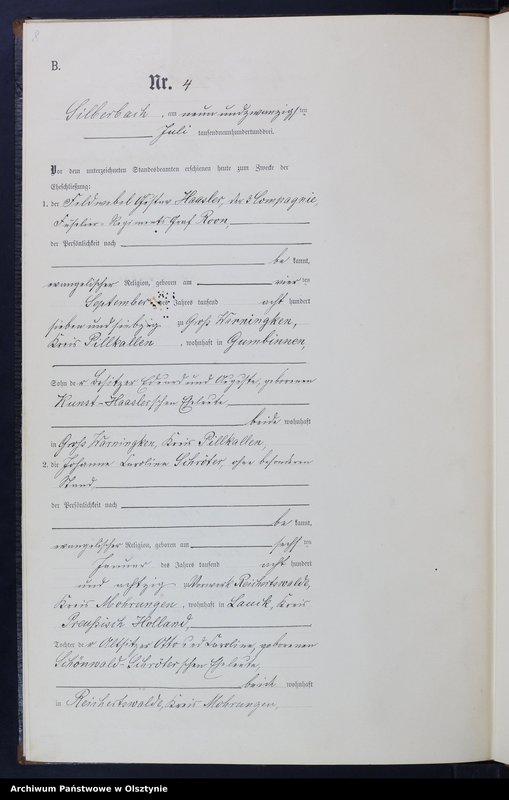 8
B.
Nr. 4
Silberbach, am neun und zwanzigsten
Juli tausendneunhundertunddrei.
Vor dem unterzeichneten Standesbeamten erschienen heute zum Zwecke der
Eheschließung:
1. der Feldwebel Gustav Haasler der 3 Compagnie
Füsilier-Regiments Graf Roon,
der Persönlichkeit nach
be kannt,
evangelischer Religion, geboren am vierten
September des Jahres tausend acht hundert
sieben und siebzig zu Groß Warningken,
Kreis Pillkallen, wohnhaft in Gumbinnen,
Sohn der Besitzer Eduard und Auguste, geborenen
Kunst-Haaslerschen Eheleute
beide wohnhaft
in Groß Warningken, Kreis Pillkallen,
2. die Johanne Caroline Schröter, ohne besonderen
Stand
der Persönlichkeit nach
be kannt,
evangelischer Religion, geboren am sechsten
Januar des Jahres tausend acht hundert
und achtzig zu Vorwerk Reichertswalde,
Kreis Mohrungen, wohnhaft in Lauck, Kreis
Preußisch Holland,
Tochter der Altsitzer Otto und Caroline, geborenen
Schönwald-Schröterschen Eheleute,
beide wohnhaft
in Reichertswalde, Kreis Mohrungen,
Archiwum Państwowe w Olsztynie